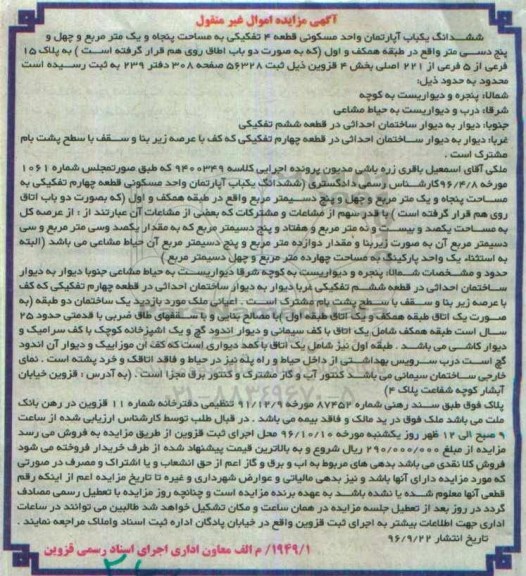 آگهی مزایده اموال غیر منقول
ششدانگ یکباب آپارتمان واحد مسکونی قطعه ۴ تفکیکی به مساحت پنجاه و یک متر مربع و چهل و
پنج دسی متر واقع در طبقه همکف و اول (که به صورت دو باب اطاق روی هم قرار گرفته است) به پلاک ۱۵
فرعی از ۵ فرعی از ۲۲۱ اصلی بخش ۴ قزوین ذیل ثبت ۵۶۳۲۸ صفحه ۳۰۸ دفتر ۲۳۹ به ثبت رسیده است
محدود به حدود ذیل:
شمالا: پنجره و دیواریست به کوچه
شرقا: درب و دیواریست به حیاط مشاعی
جنوبا: دیوار به دیوار ساختمان احداثی در قطعه ششم تفکیکی
غربا: دیوار به دیوار ساختمان احداثی در قطعه چهارم تفکیکی که کف با عرصه زیر بنا و سقف با سطح پشت بام
مشترک است .
ملکی آقای اسمعیل باقری زره باشی مدیون پرونده اجرایی کلاسه ۹۴۰۰۳۴۹ که طبق صورتمجلس شماره ۱۰۶۱
مورخه ۹۶/۴/۸ کارشناس رسمی دادگستری (ششدانگ یکباب آپارتمان واحد مسکونی قطعه چهارم تفکیکی به
مساحت پنجاه و یک متر مربع و چهل و پنج دسیمتر مربع واقع در طبقه همکف و اول (که بصورت دو باب اتاق
روی هم قرار گرفته است) با قدر سهم از مشاعات و مشترکات که بعضی از مشاعات آن عبارتند از : از عرصه کل
به مساحت یکصد و بیست و نه متر مربع و هفتاد و پنج دسیمتر مربع که به مقدار یکصد وسی متر مربع و سی
دسیمتر مربع آن به صورت زیربنا و مقدار دوازده متر مربع و پنج دسیمتر مربع آن حیاط مشاعی می باشد (البته
به استثناء یک واحد پارکینگ به مساحت چهارده متر مربع و چهل دسیمتر مربع.)
حدود و مشخصات شمالا: پنجره و دیواریست به کوچه شرقا دیواریست به حیاط مشاعی جنوبا دیوار به دیوار
ساختمان احداثی در قطعه ششم تفکیکی غربا دیوار به دیوار ساختمان احداثی در قطعه چهارم تفکیکی که کف
با عرصه زیر بنا و سقف با سطح پشت بام مشترک است . اعیانی ملک مورد بازدید یک ساختمان دو طبقه (به
صورت یک اتاق طبقه همکف و یک اتاق طبقه اول) با مصالح بنایی و با سقفهای طاق ضربی با قدمتی حدود ۲۵
سال است طبقه همکف شامل یک اتاق با کف سیمانی و دیوار اندود گچ و یک آشپزخانه کوچک با کف سرامیک و
دیوار کاشی می باشد . طبقه اول نیز شامل یک اتاق با کمد دیواری است که کف آن موزاییک و دیوار آن اندود
گچ است درب سرویس بهداشتی از داخل حیاط و راه پله نیز در حیاط و فاقد اتاقک و خرپشته است . نمای
خارجی ساختمان سیمانی می باشد کنتور آب و گاز مشترک و کنتور برق مجزا است . (به آدرس : قزوین خیابان
آبشار کوچه شفاعت پلاک ۴)
پلاک فوق طبق سند رهنی شماره ۸۷۴۵۲ مورخه ۹۱/۱۲/۹ تنظیمی دفترخانه شماره ۱۱ قزوین در رهن بانک
ملت می باشد ملک فوق در ید مالک و فاقد بیمه می باشد . در قبال طلب توسط کارشناس ارزیابی شده از ساعت
۹ صبح الی ۱۲ ظهر روز یکشنبه مورخه ۹۶/۱۰/۱۰ محل اجرای ثبت قزوین از طریق مزایده به فروش می رسد
مزایده از مبلغ ۲۹۰/۰۰۰/۰۰۰ ریال شروع و به بالاترین قیمت پیشنهاد شده از طرف خریدار فروخته می شود
فروش کلا نقدی می باشد بدهی های مربوط به آب و برق و گاز اعم از حق انشعاب و یا اشتراک و مصرف در صورتی
که مورد مزایده دارای آنها باشد و نیز بدهی مالیاتی و عوارض شهرداری و غیره تا تاریخ مزایده اعم از اینکه رقم
قطعی آنها معلوم شده یا نشده باشد به عهده برنده مزایده است و چنانچه روز مزایده با تعطیل رسمی مصادف
گردد در روز بعد از تعطیل جلسه مزایده در همان ساعت و مکان تشکیل خواهد شد طالبین می توانند در ساعات
اداری جهت اطلاعات بیشتر به اجرای ثبت قزوین واقع در خیابان پادگان اداره ثبت اسناد واملاک مراجعه نمایند .
تاریخ انتشار ۹۶/۹/۲۲
۱۹۴۹/۱/ م الف معاون اداری اجرای اسناد رسمی قزوین